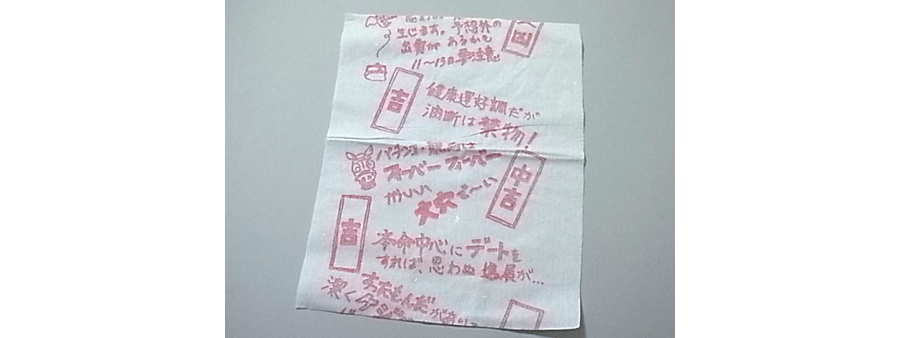 生じます。予想外の
出費が あるかも
11〜13日 要注意
凶
吉
健康運好調だが
油断は禁物!
パチンコ・競馬は
フィーバー フィーバー
かいい
大穴で〜い
中吉
吉
本命中心にデートを
すれば、思わぬ進展が…
すったもんだがあり
潔く